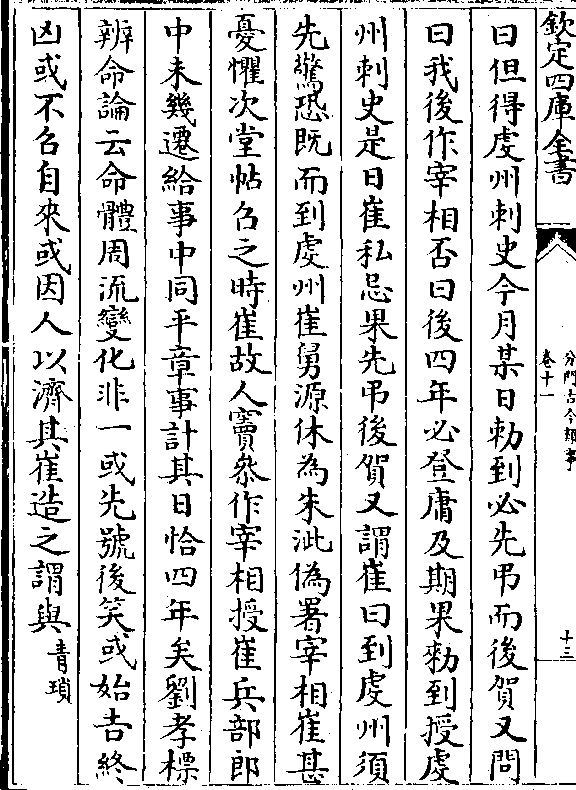 欽定四庫全書
分門古今類事
卷十一
十三
曰但得䖍州刺史今月某日勅到必先弔而後賀又問
曰我後作宰相否曰後四年必登庸及期果勑到授䖍
州刺史是日崔私忌果先弔後賀又謂崔曰到䖍州須
先驚恐既而到䖍州崔舅源休為朱泚偽署宰相崔甚
憂懼次堂帖名之時崔故人竇叅作宰相授崔兵部郎
中未幾遷給事中同平章事計其日恰四年矣劉孝標
辨命論云命體周流變化非一或先號後笑或始吉終
凶或不名自來或因人以濟其崔造之謂與青瑣